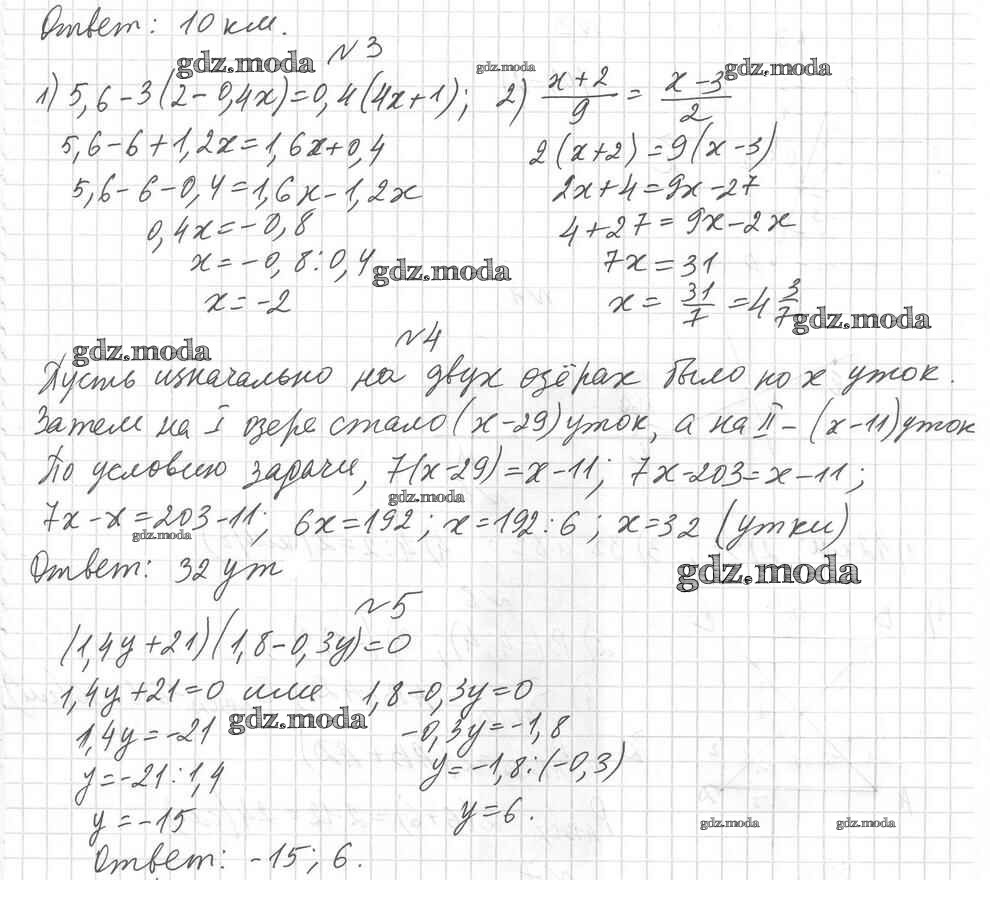 Ответ: 10 км.
№3
gdz.moda gdz.moda gdz.moda
1) 5,6-3(2-0,4x)=0,4(4x+1); 2) (x+2)/9 = (x-3)/2
5,6-6+1,2x=1,6x+0,4 2(x+2)=9(x-3)
5,6-6-0,4=1,6x-1,2x 2x+4=9x-27
0,4x=-0,8 4+27=9x-2x
x=-0,8:0,4 7x=31
gdz.moda
x=-2 x= 31/7 =4 3/7
gdz.moda
№4
gdz.moda
Пусть изначально на двух озёрах было по x уток.
Затем на I озере стало (x-29) уток, а на II - (x-11) уток
По условию задачи, 7(x-29)=x-11; 7x-203=x-11;
gdz.moda
7x-x=203-11; 6x=192; x=192:6; x=32 (утки)
gdz.moda
Ответ: 32 ут
gdz.moda
№5
(1,4y+21)(1,8-0,3y)=0
1,4y+21=0 или 1,8-0,3y=0
gdz.moda
1,4y=-21 -0,3y=-1,8
y=-21:1,4 y=-1,8:(-0,3)
y=-15 y=6.
gdz.moda gdz.moda
Ответ: -15; 6.